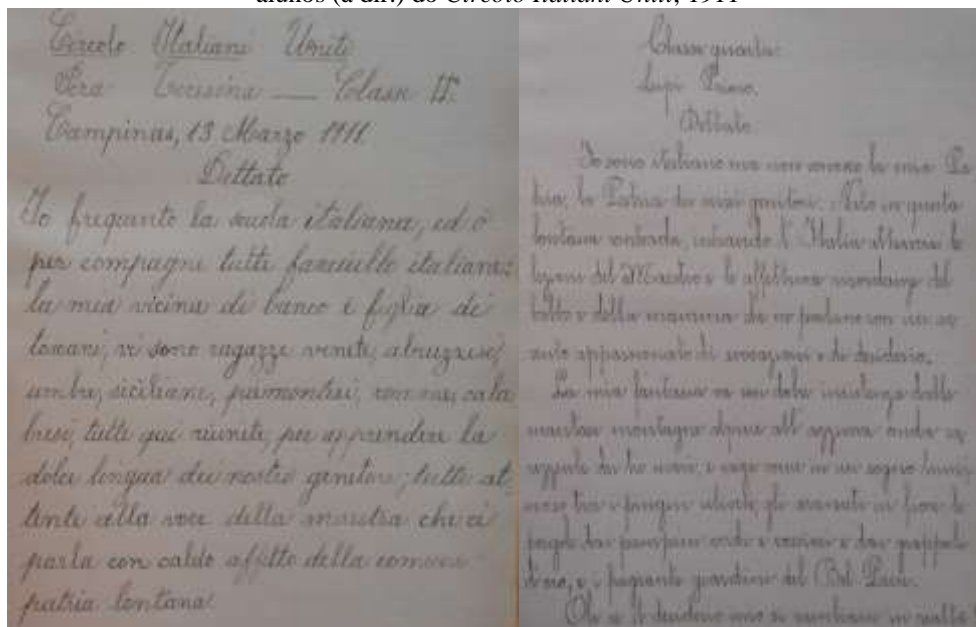 alunos (à dir.) do Circolo Italiani Uniti, 1911
Circolo Italiani Uniti
Pera Teresina — Classe II.
Campinas, 13 Marzo 1911.
Dettato
Io frequento la scuola italiana, ed ò
per compagne tutte fanciulle italiane;
la mia vicina di banco è figlia di
toscani, vi sono ragazze venete, abruzzesi,
umbre, siciliane, piemontesi, romane, cala
bresi, tutte qui riunite, per apprendere la
dolce lingua dei nostri genitori; tutte at
tente alla voce della maestra che ci
parla con caldo affetto della comune
patria lontana.
Classe quarta
Lupi Primo.
Dettato
Io sono italiano ma non conosco la mia Pa
tria, la Patria dei miei genitori. Nato in questa
lontana contrada, intravedo l'Italia attraverso le
lezioni del Maestro e le affettuose ricordanze del
babbo e della mamma che ne parlano con un ac
cento appassionato di
e di desiderio.
La mia fantasia va con dolce insistenza dalle
maestose montagne alpine all'azzurra onda
dei tre mari, e vago come in un sogno lumi
noso tra i pingui uliveti, gli aranceti in fiore le
pergole dai pampini verdi e
e dai grappoli
d'oro, e i fragranti giardini del Bel Paese.
Oh! se il desiderio mio si cambiasse in realtà!